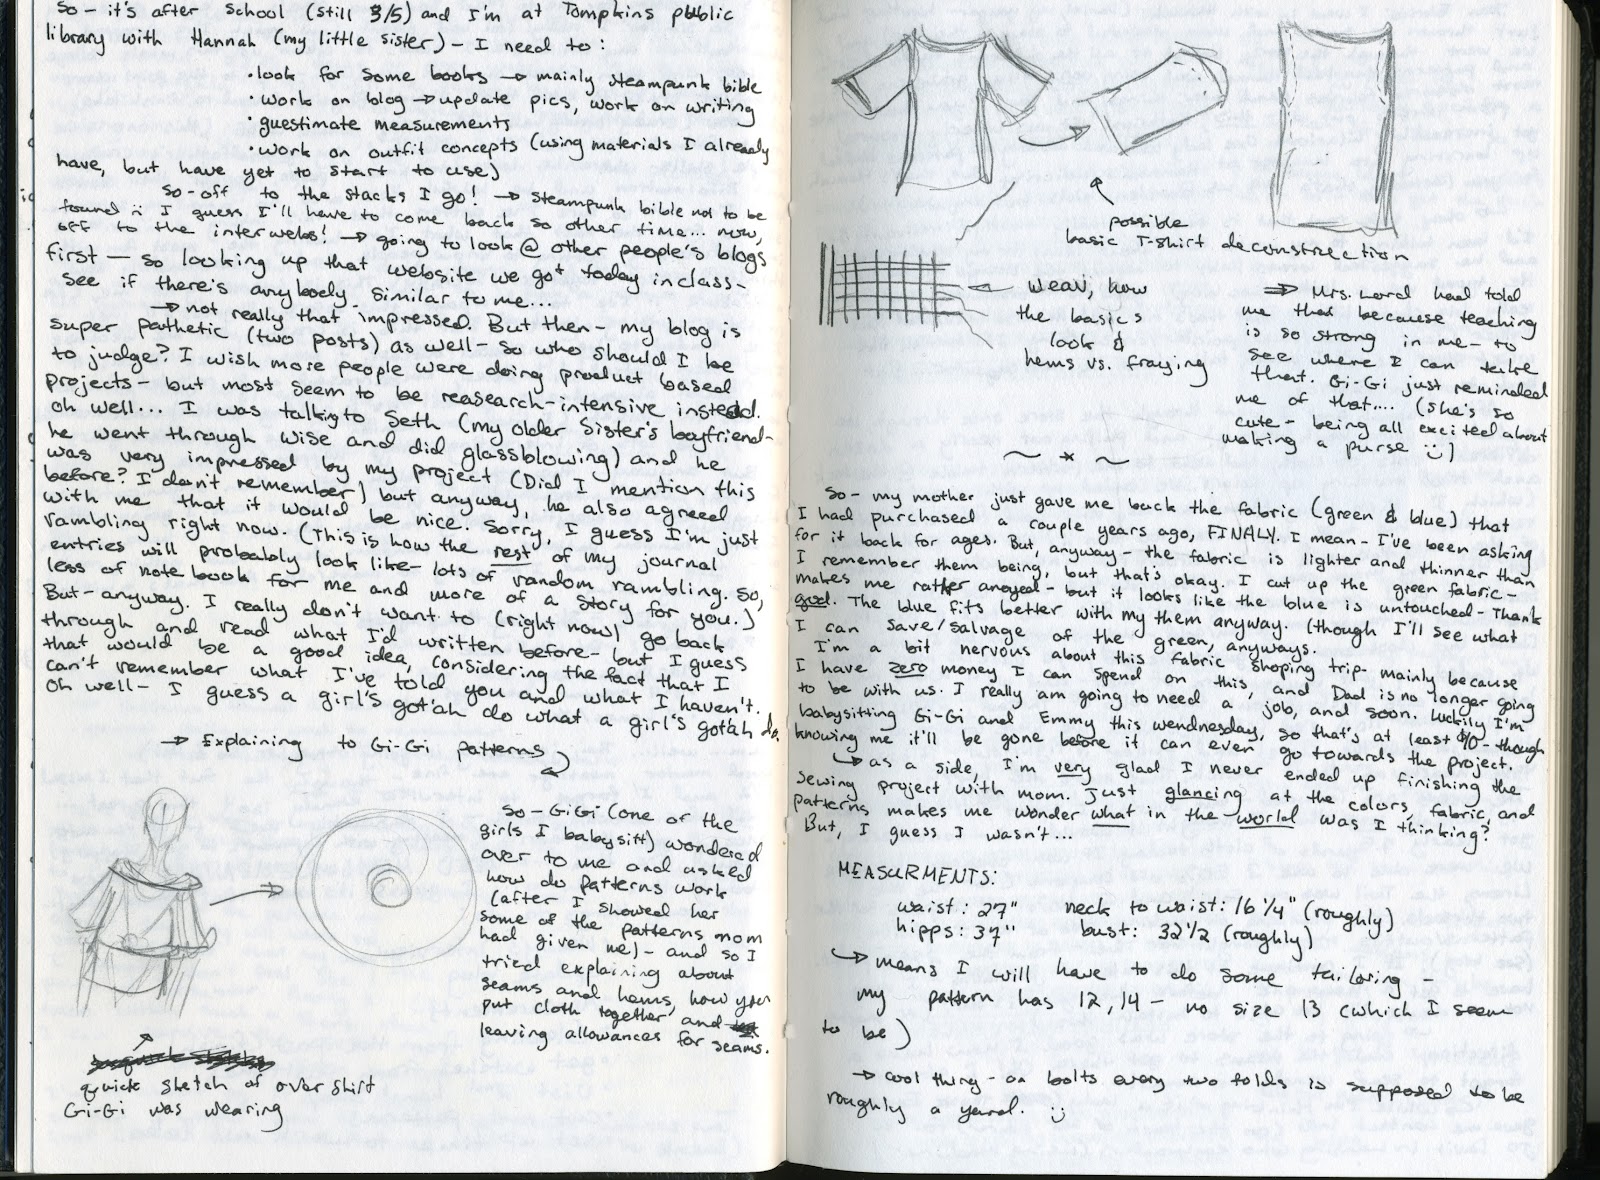 So - it's after school (still 3/5) and I'm at Tompkins public
library with Hannah (my little sister) - I need to:
• look for some books → mainly steampunk bible
• work on blog → update pics, work on writing
• guestimate measurements
• work on outfit concepts (using materials I already
have, but have yet to start to use)
So - off to the stacks I go! → steampunk bible not to be
found :( I guess I'll have to come back so other time... now,
off to the interwebs! → going to look @ other people's blogs
first — so looking up that website we got today in class -
see if there's anybody similar to me...
→ not really that impressed. But then - my blog is
super pathetic (two posts) as well - so who should I be
to judge? I wish more people were doing product based
projects - but most seem to be reasearch-intensive instead.
oh well... I was talking to Seth (my older sister's boyfriend -
he went through wise and did glassblowing) and he
was very impressed by my project (Did I mention this
before? I don't remember) but anyway, he also agreed
with me that it would be nice. Sorry, I guess I'm just
rambling right now. (This is how the rest of my journal
entries will probably look like - lots of random rambling. So,
less of note book for me and more of a story for you.)
But - anyway. I really don't want to (right now) go back
through and read what I'd written before - but I guess
that would be a good idea, considering the fact that I
can't remember what I've told you and what I haven't.
Oh well - I guess a girl's got'ah do what a girl's got'ah do.
→ Explaining to Gi-Gi patterns
So - GiGi (one of the
girls I babysitt) wondered
over to me and asked
how do patterns work
(after I showed her
some of the patterns mom
had given me) - and so I
tried explaining about
seams and hems, how you
put cloth together and
leaving allowances for seams.
quick sketch of over shirt
Gi-Gi was wearing
possible
basic T-shirt deconstrection
weav, how
the basics
look &
hems vs. fraying
⇒ Mrs. Lord had told
me that because teaching
is so strong in me - to
see where I can take
that. Gi-Gi just reminded
me of that.... (she's so
cute - being all excited about
making a purse :))
~ * ~
So - my mother just gave me back the fabric (green & blue) that
I had purchased a couple years ago, FINALY. I mean - I've been asking
for it back for ages. But, anyway - the fabric is lighter and thinner than
I remember them being, but that's okay. I cut up the green fabric -
makes me rather anoyed - but it looks like the blue is untouched - Thank
god. The blue fits better with my them anyway. (though I'll see what
I can save/salvage of the green, anyways.
I'm a bit nervous about this fabric shoping trip - mainly because
I have zero money I can spend on this, and Dad is no longer going
to be with us. I really am going to need a job, and soon. Luckily I'm
babysitting Gi-Gi and Emmy this wendnesday, so that's at least $10 - though
knowing me it'll be gone before it can ever go towards the project.
↳ as a side, I'm very glad I never ended up finishing the
sewing project with mom. Just glancing at the colors, fabric, and
patterns makes me wonder what in the world was I thinking?
But, I guess I wasn't...
MEASURMENTS:
waist: 27" neck to waist: 16 1/4" (roughly)
hipps: 37" bust: 32 1/2 (roughly)
↳ means I will have to do some tailoring -
my pattern has 12, 14 - no size 13 (which I seem
to be)
→ cool thing - on bolts every two folds is supposed to be
roughly a yard. :)